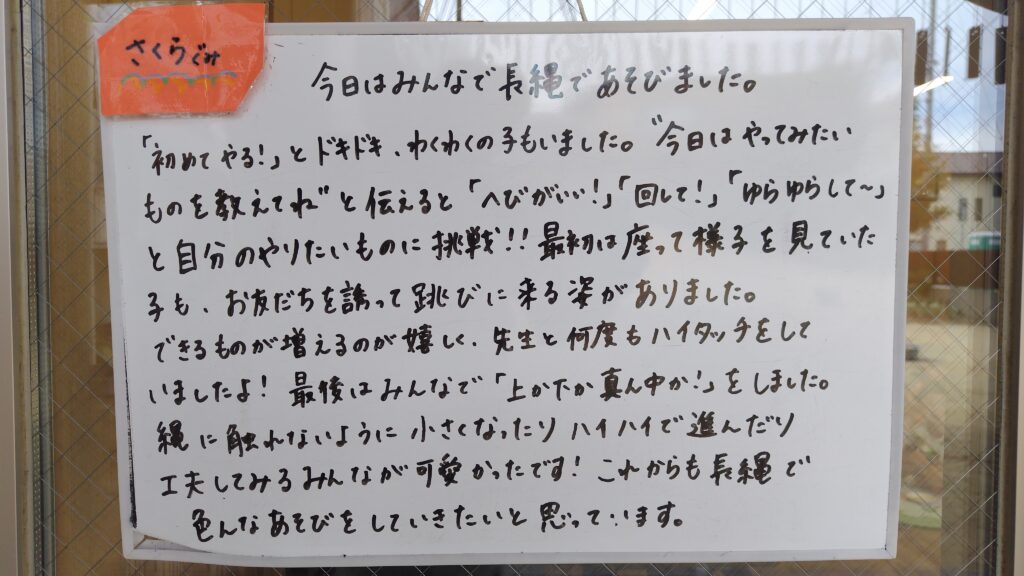 さくらぐみ
今日はみんなで長縄であそびました。
「初めてやる！」とドキドキ、わくわくの子もいました。"今日はやってみたい
ものを教えてね"と伝えると「へびがいい！」「回して！」「ゆらゆらして〜」
と自分のやりたいものに挑戦!! 最初は座って様子を見ていた
子も、お友だちを誘って跳びに来る姿がありました。
できるものが増えるのが嬉しく、先生と何度もハイタッチをして
いましたよ！ 最後はみんなで「上か下か真ん中か！」をしました。
縄に触れないように小さくなったりハイハイで進んだり
工夫してみるみんなが可愛かったです！ これからも長縄で
色んなあそびをしていきたいと思っています。